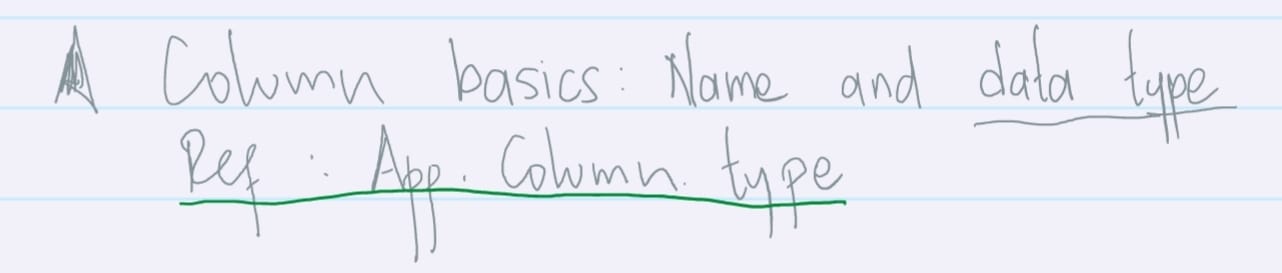 A Column basics: Name and data type
Ref : App. Column. type